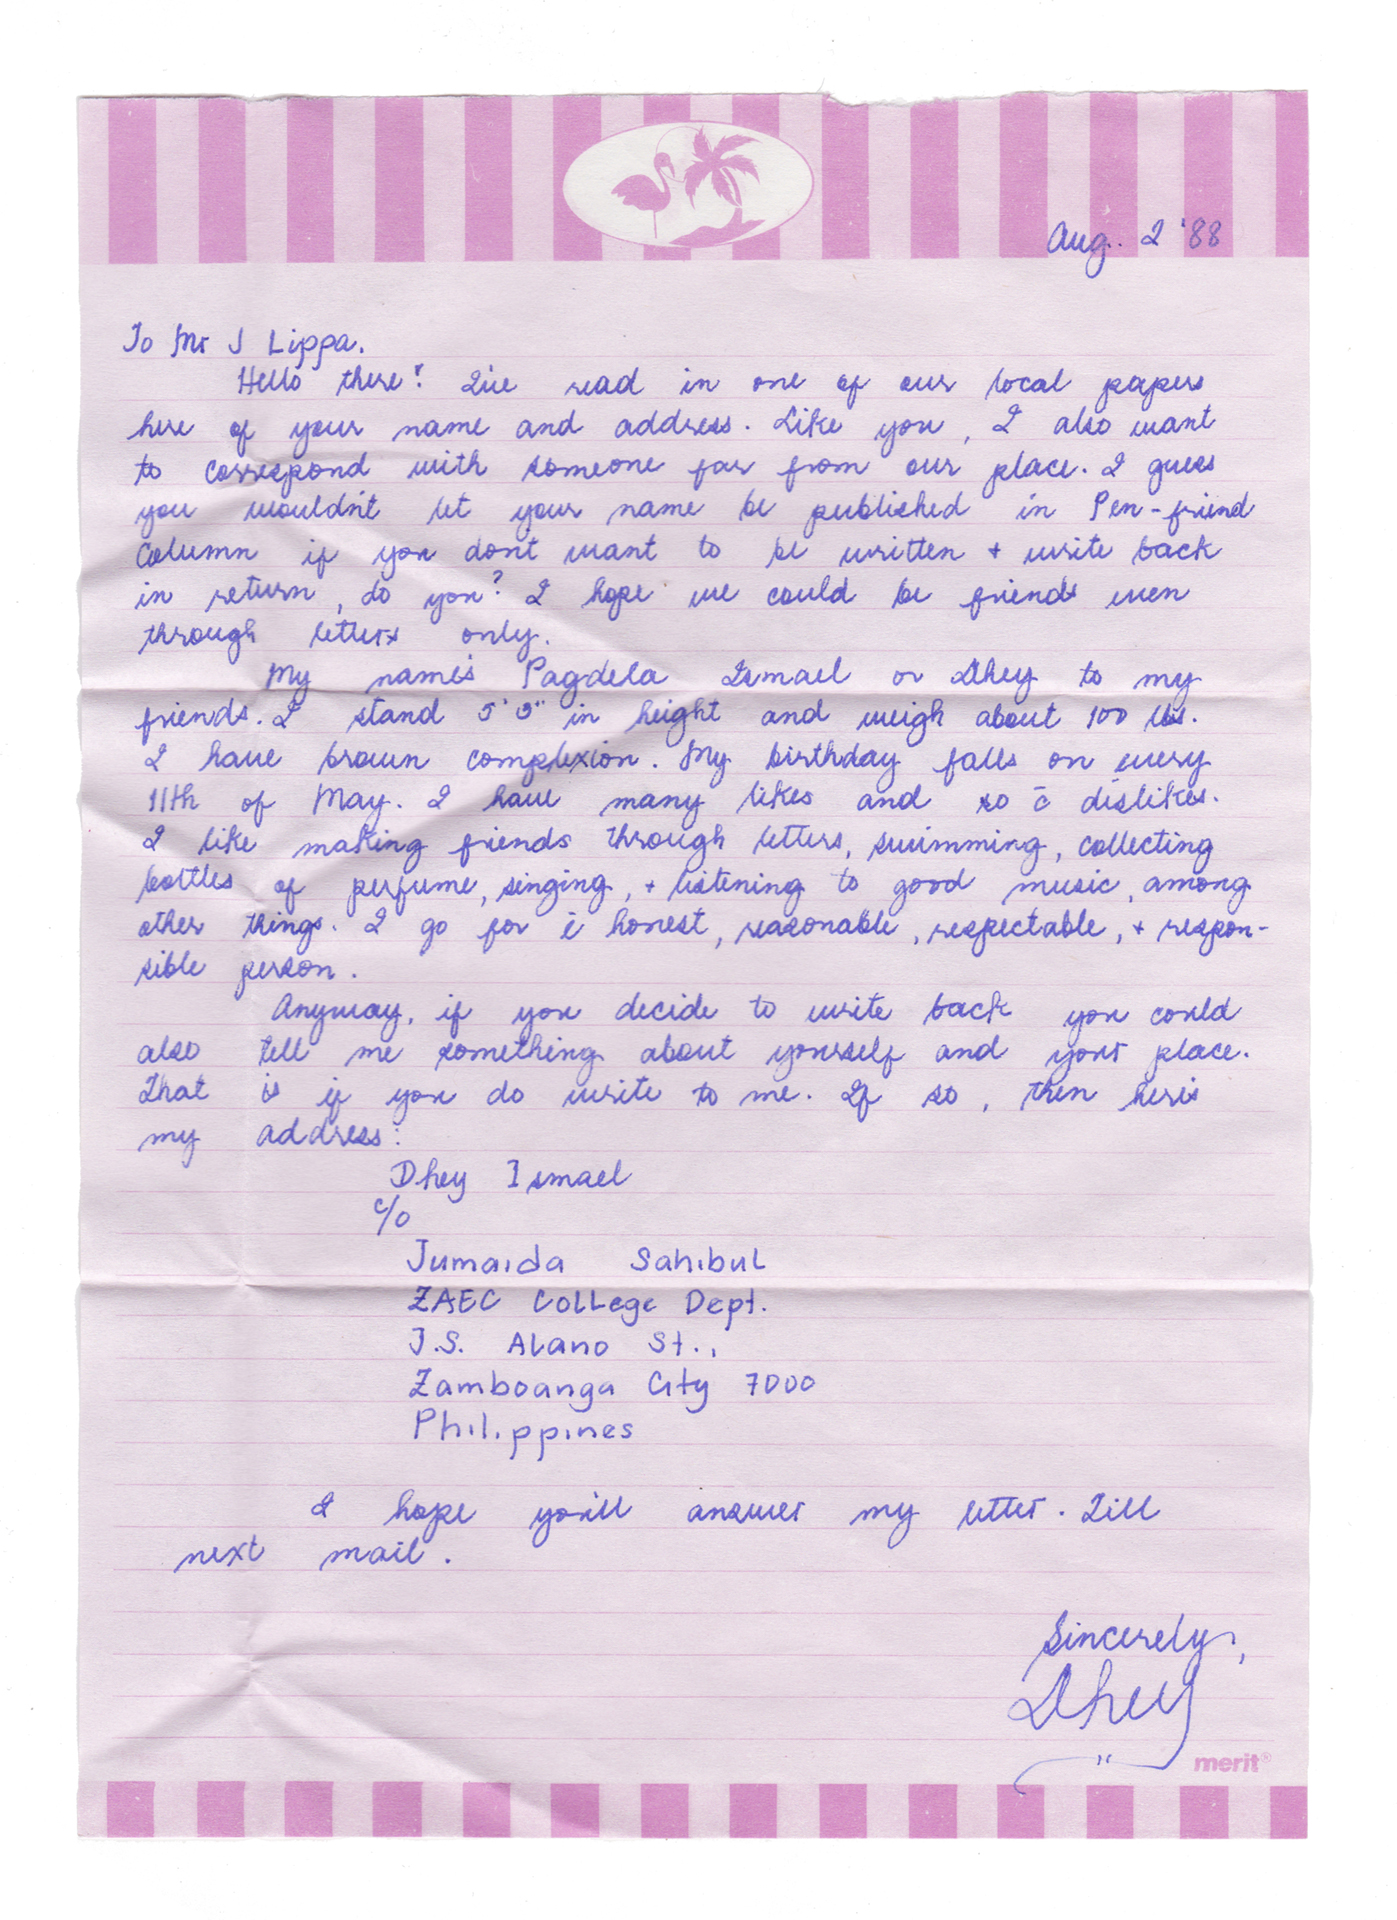 Aug. 2 '88
To Mr J Lippa.
Hello there! I've read in one of our local papers
here of your name and address. Like you, I also want
to correspond with someone far from our place. I guess
you wouldn't let your name be published in Pen-friend
Column if you don't want to be written + write back
in return, do you? I hope we could be friends even
through letters only.
My name's Pagdela Ismael or Dhey to my
friends. I stand 5' 3" in height and weigh about 100 lbs.
I have brown complexion. My birthday falls on every
11th of May. I have many likes and so c̄ dislikes.
I like making friends through letters, swimming, collecting
bottles of perfume, singing, + listening to good music, among
other things. I go for honest, reasonable, respectable, + respon-
sible person.
Anyway, if you decide to write back you could
also tell me something about yourself and your place.
That is if you do write to me. If so, then here's
my address:
Dhey Ismael
c/o
Jumaida Sahibul
ZAEC College Dept.
J.S. Alano St.,
Zamboanga City 7000
Philippines
I hope you'll answer my letter. Till
next mail.
Sincerely,
Dhey
merit®